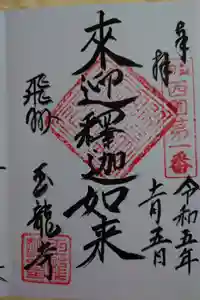 奉拝
第一番
令和五年
十一月五日
來迎釋迦如来
飛州
玉龍寺